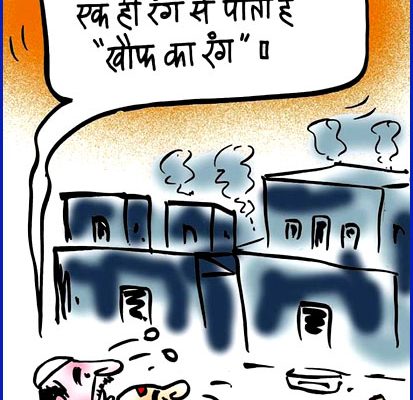 एक ही रंग से पोता है
"खौफ का रंग"।